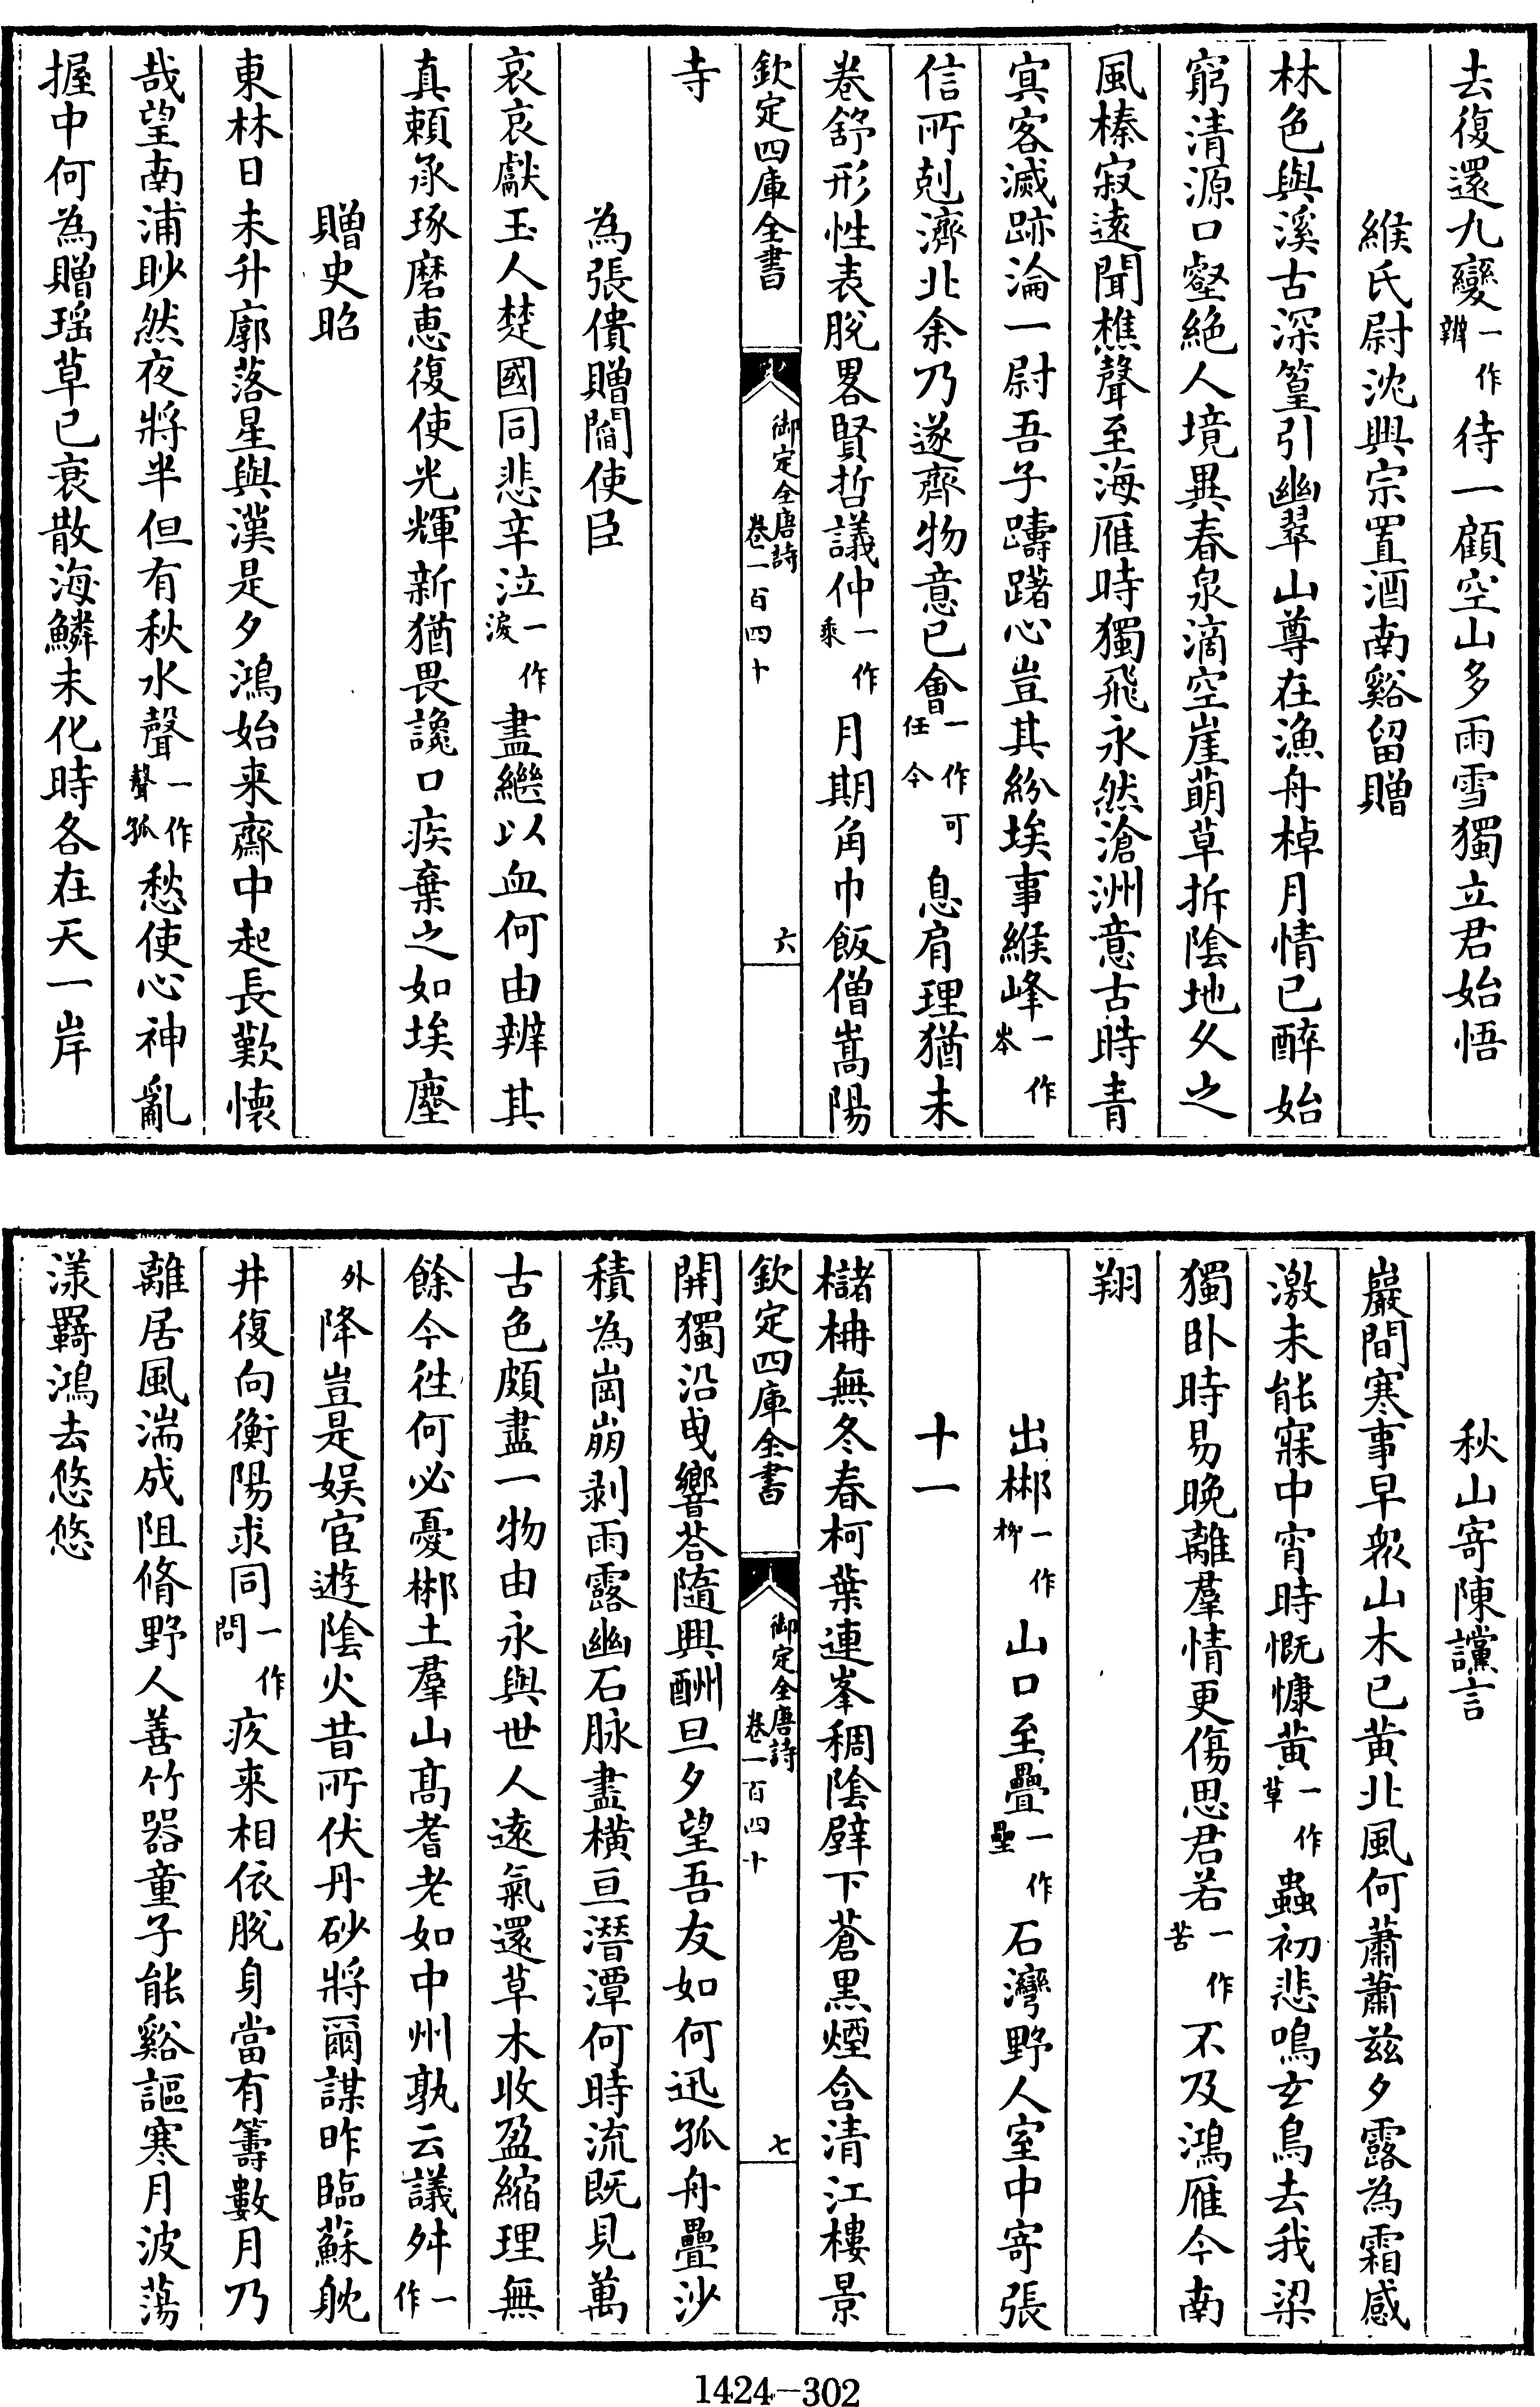 去復還九變一作辨待一顧空山多雨雪獨立君始悟
緱氏尉沈興宗置酒南谿留贈
林色與溪古深篁引幽翠山尊在漁舟棹月情已醉始
窮清源口壑絶人境異春泉滴空崖萌草拆陰地久之
風榛寂遠聞樵聲至海雁時獨飛永然滄洲意古時青
冥客滅跡淪一尉吾子躊躇心豈其紛埃事緱峰一作岑
信所剋濟北余乃遂齊物意已會一作可任今息肩理猶未
卷舒形性表脫畧賢哲議仲一作乘月期角巾飯僧嵩陽
欽定四庫全書 御定全唐詩卷一百四十 六
寺
為張僓贈閻使臣
哀哀獻玉人楚國同悲辛泣一作淚盡繼以血何由辨其
真賴承琢磨惠復使光輝新猶畏讒口疾棄之如埃塵
贈史昭
東林日未升廓落星與漢是夕鴻始来齋中起長歎懷
哉望南浦眇然夜將半但有秋水聲一作聲孤愁使心神亂
握中何為贈瑶草已衰散海鱗未化時各在天一岸
秋山寄陳讜言
巖間寒事早衆山木已黄北風何蕭蕭兹夕露為霜感
激未能寐中宵時慨慷黄一作草蟲初悲鳴玄鳥去我梁
獨卧時易晚離羣情更傷思君若一作苦不及鴻雁今南
翔
出郴一作柳山口至疊一作壘石灣野人室中寄張
十一
櫧柟無冬春柯葉連峯稠陰壁下蒼黒煙含清江樓景
欽定四庫全書 御定全唐詩卷一百四十 七
開獨沿曳響荅隨興酬旦夕望吾友如何迅孤舟疊沙
積為崗崩剥雨露幽石脉盡横亘潛潭何時流既見萬
古色頗盡一物由永與世人遠氣還草木收盈縮理無
餘今徃何必憂郴土羣山髙耆老如中州孰云議舛一作
外降豈是娱宦遊陰火昔所伏丹砂將爾謀昨臨蘇躭
井復向衡陽求同一作問疚来相依脫身當有籌數月乃
離居風湍成阻脩野人善竹器童子能谿謳寒月波蕩
漾羇鴻去悠悠
1424-302